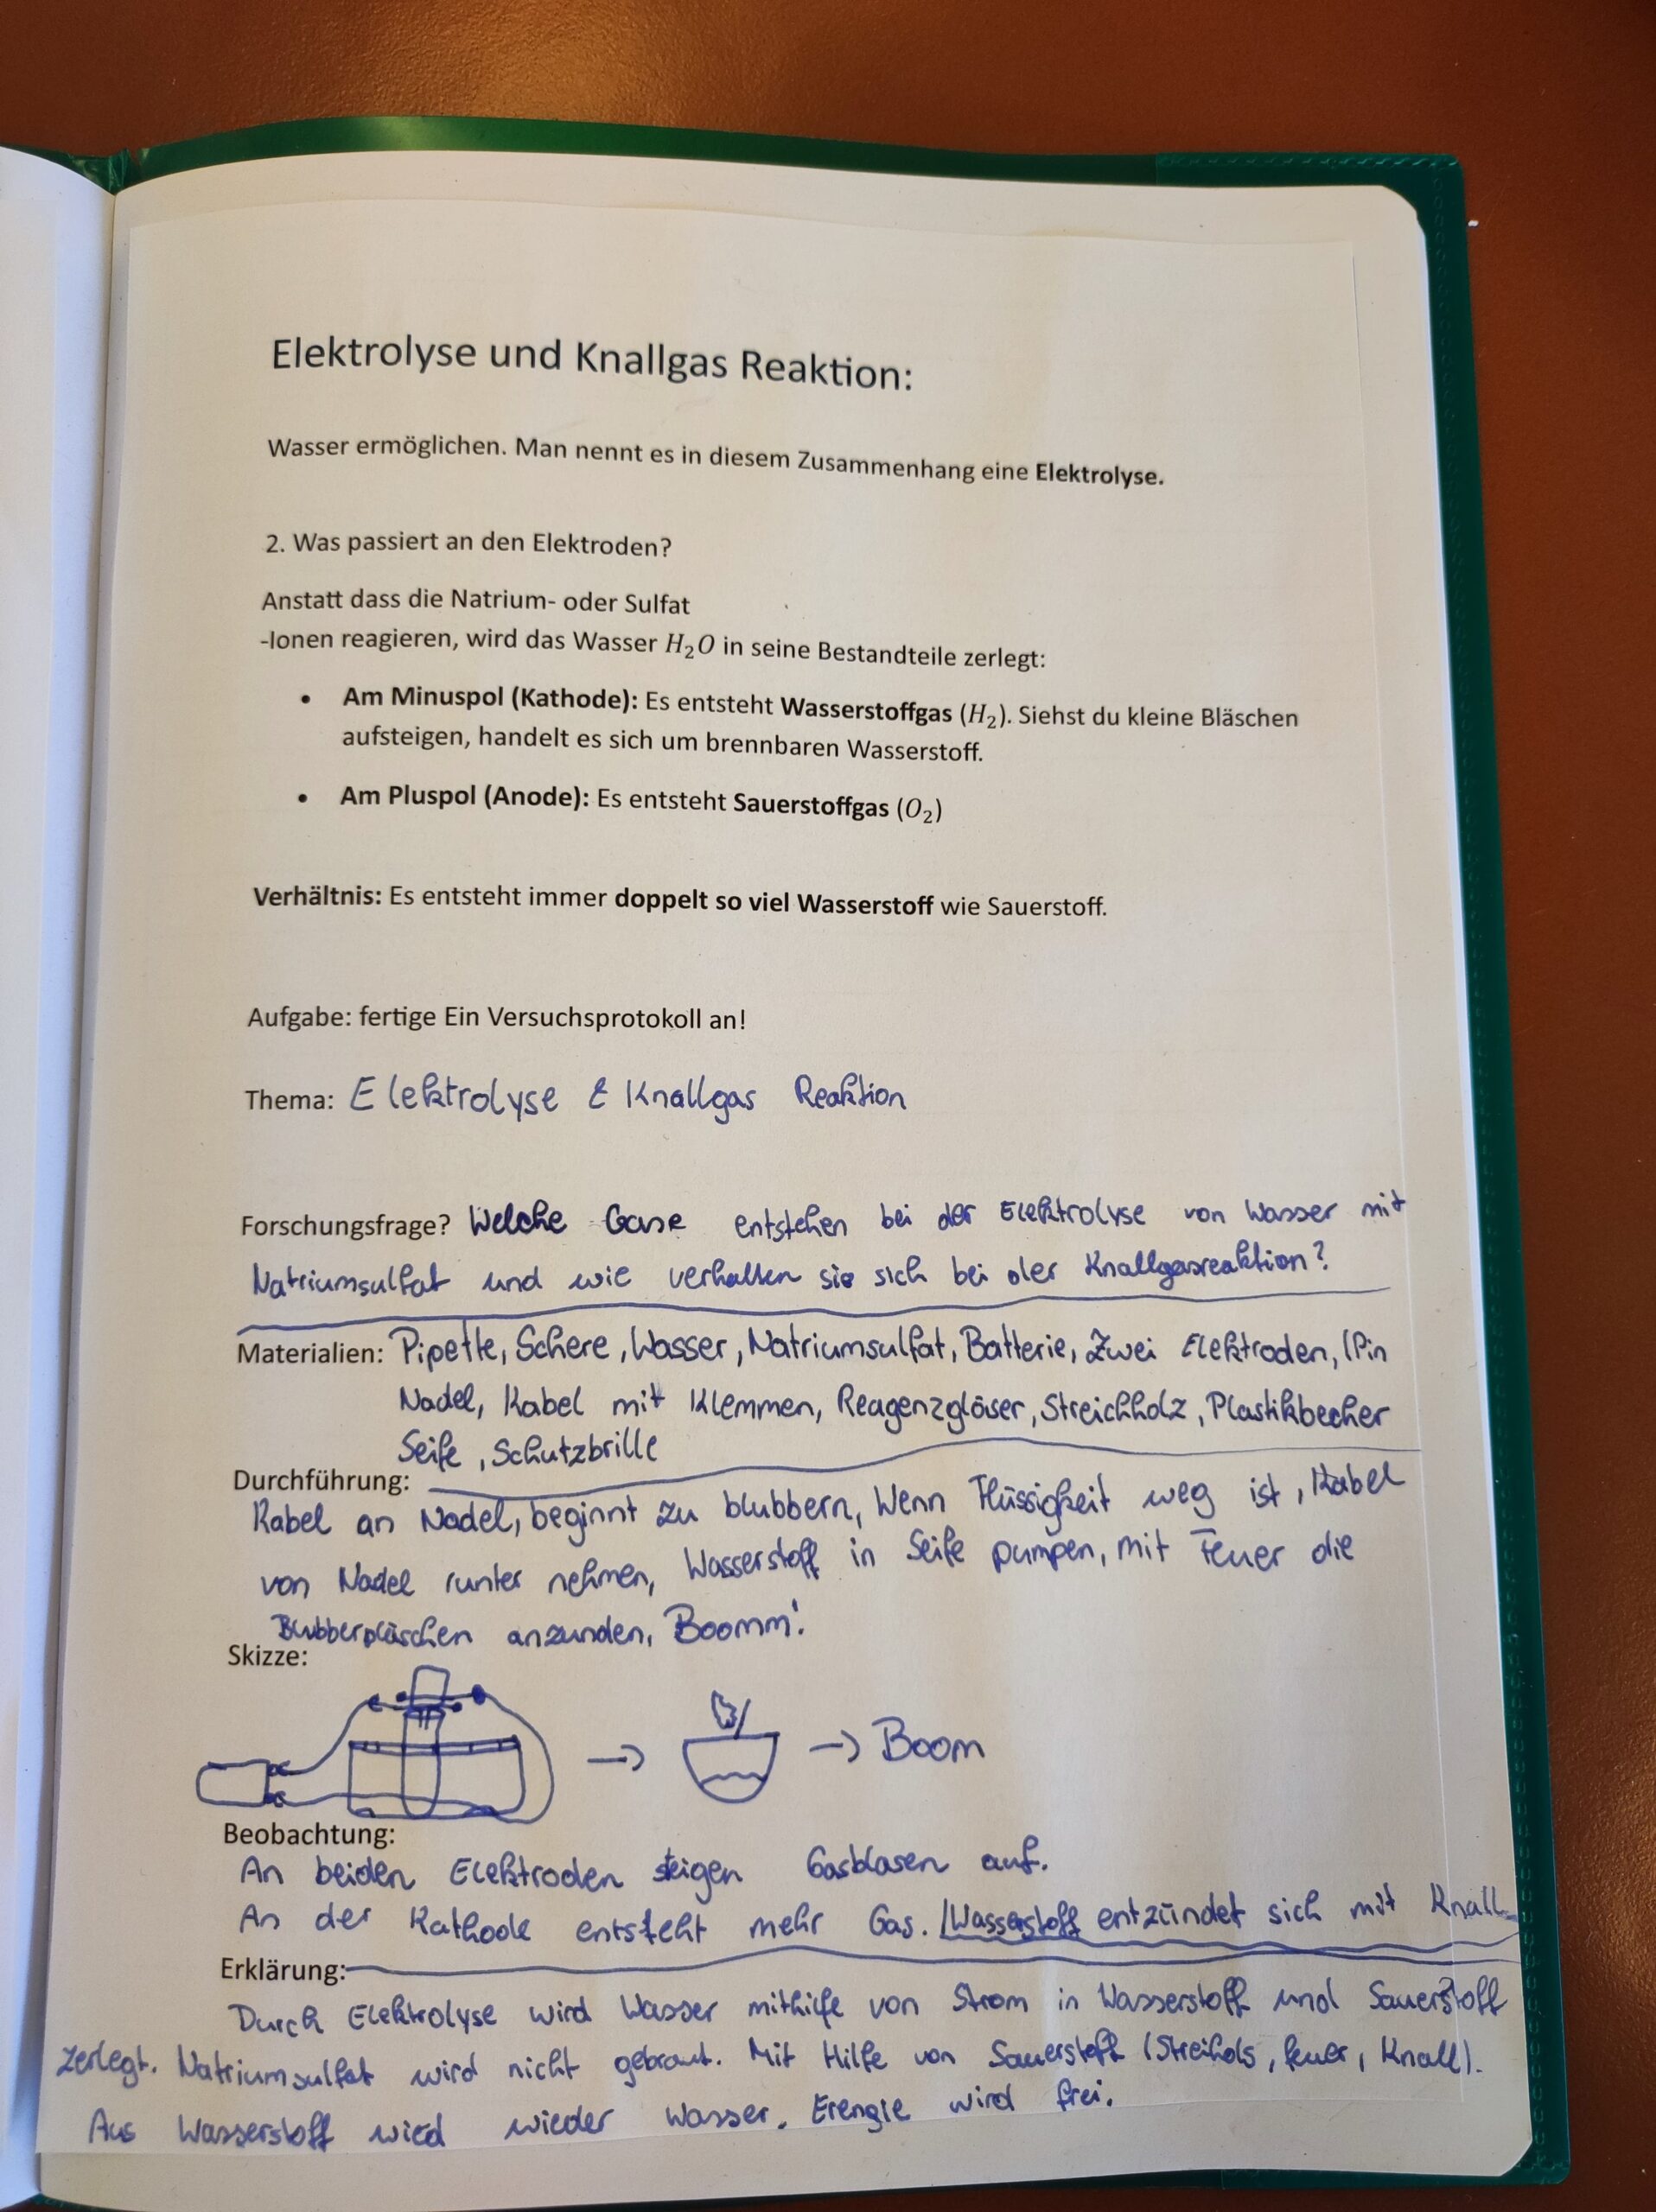 Elektrolyse und Knallgas Reaktion:
Wasser ermöglichen. Man nennt es in diesem Zusammenhang eine Elektrolyse.
2. Was passiert an den Elektroden?
Anstatt dass die Natrium- oder Sulfat
-Ionen reagieren, wird das Wasser H₂O in seine Bestandteile zerlegt:
• Am Minuspol (Kathode): Es entsteht Wasserstoffgas (H₂). Siehst du kleine Bläschen
aufsteigen, handelt es sich um brennbaren Wasserstoff.
• Am Pluspol (Anode): Es entsteht Sauerstoffgas (O₂)
Verhältnis: Es entsteht immer doppelt so viel Wasserstoff wie Sauerstoff.
Aufgabe: fertige Ein Versuchsprotokoll an!
Thema: Elektrolyse & Knallgas Reaktion
Forschungsfrage? Welche Gase entstehen bei der Elektrolyse von Wasser mit
Natriumsulfat und wie verhalten sie sich bei der Knallgasreaktion?
Materialien: Pipette, Schere, Wasser, Natriumsulfat, Batterie, Zwei Elektroden, (Pin
Nadel, Kabel mit Klemmen, Reagenzgläser, Streichholz, Plastikbecher
Seife, Schutzbrille
Durchführung:
Kabel an Nadel, beginnt zu blubbern, Wenn Flüssigkeit weg ist, Kabel
von Nadel runter nehmen, Wasserstoff in Seife pumpen, mit Feuer die
Blubberpläschen anzunden, Boomm!
Skizze:
→ → Boom
Beobachtung:
An beiden Elektroden steigen Gasblasen auf.
An der Kathode entsteht mehr Gas. / Wasserstoff entzündet sich mit Knall
Erklärung:
Durch Elektrolyse wird Wasser mithilfe von Strom in Wasserstoff und Sauerstoff
zerlegt. Natriumsulfat wird nicht gebraut. Mit Hilfe von Sauerstoff (Streihols, feuer, Knall).
Aus Wasserstoff wird wieder Wasser. Erengie wird frei.